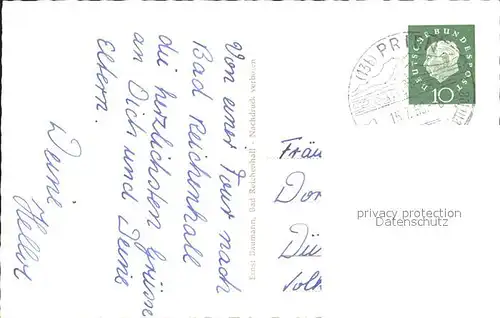 Von einer Tour nach
Bad Reichenhall
die herzlichsten Grüsse
an Dich und Deine
Eltern.
Deine
Ernst Baumann, Bad Reichenhall - Nachdruck verboten
(13b) PRI
DEUTSCHE BUNDESPOST
10
Fräu
Dor
privacy protection
Datenschutz
Dü
Volk